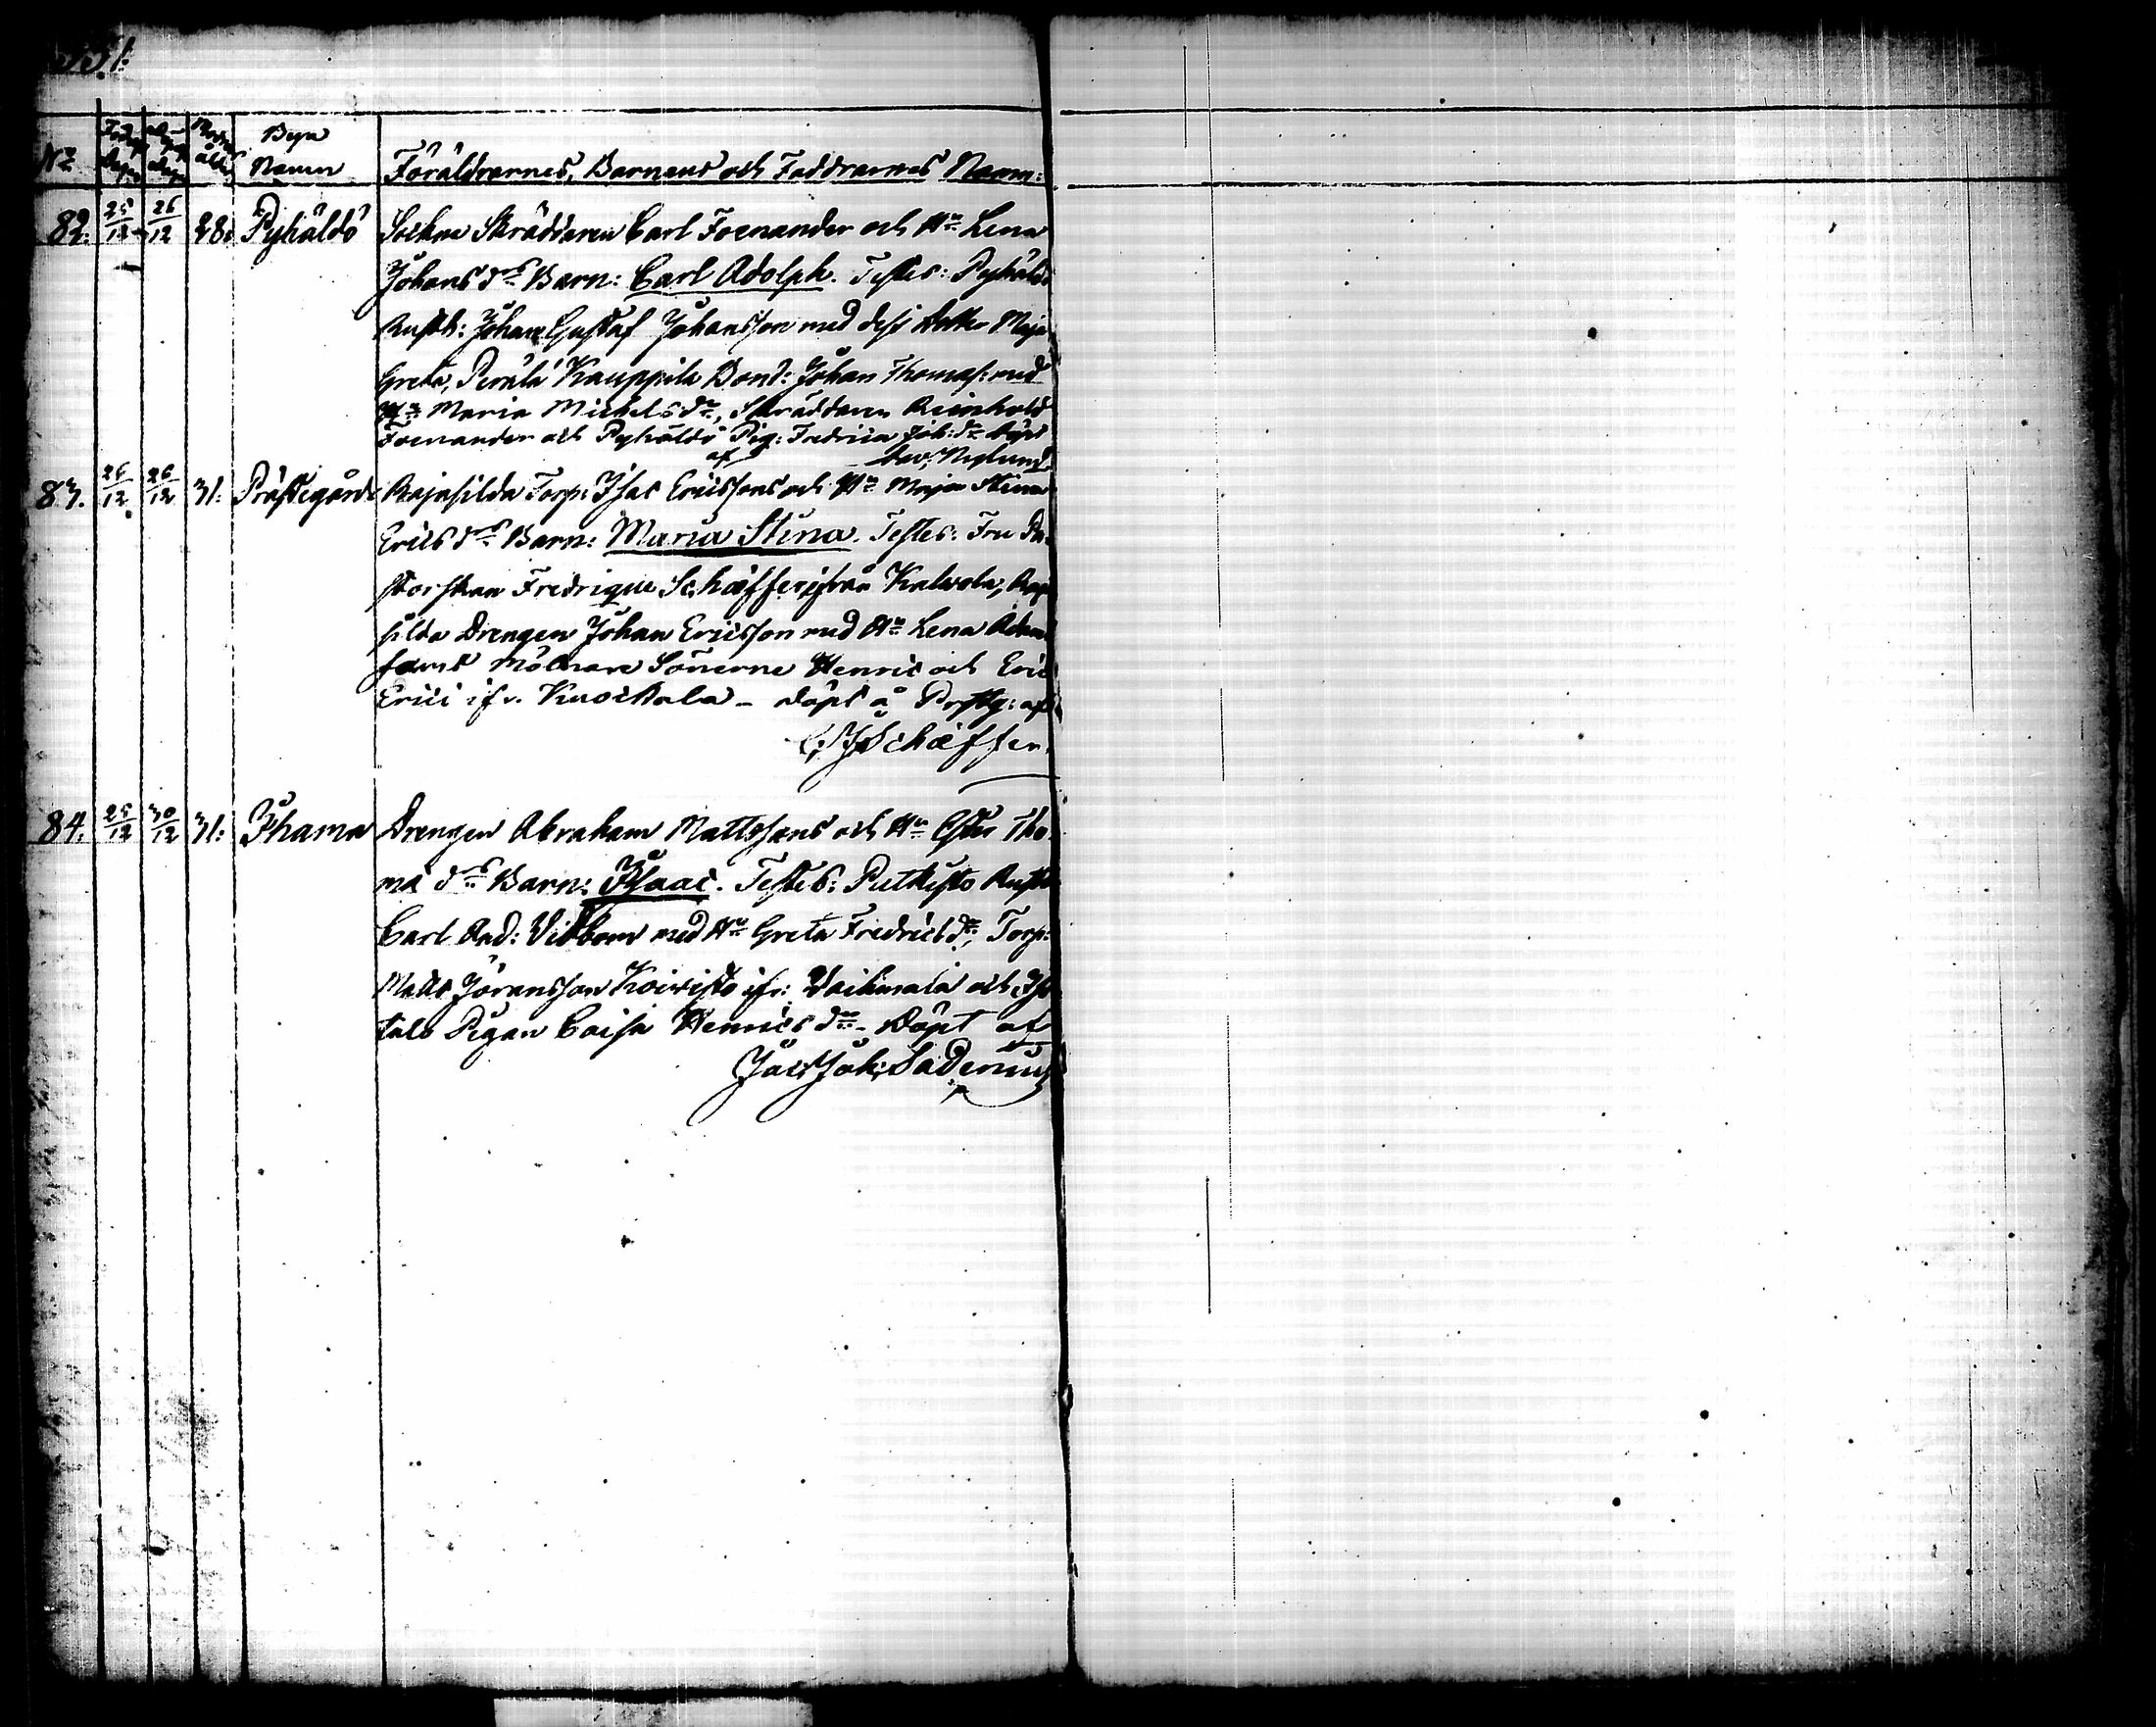 № Föd: dag. Döp: dag. Modr: ålder Bya Namn Föräldrarnes, Barnens och Faddrarnes Namn:
82. 25/12 26/12 28. Pyhäldö Sockne Skräddaren Carl Foenander och Hu Lena
Johans drs Barn: Carl Adolph. Testes: Pyhäldö
Rusth: Johan Gustaf Johansson med dess Dotter Maja
Greta, Perälä Kauppila Bond: Johan Thomas: med
Hu Maria Michels dr, Skräddaren Reinhold
Foenander och Pyhäldö Pig: Fredrica Joh: dr döpt
af Nyglund
83. 26/12 26/12 31. Prästegårds Rajasilda Torp: Isac Ericssons och Hu Maja Stina
Erics drs Barn: Maria Stina. Testes: Fru Pa-
storskan Fredrique Schæffer ifrån Kalvola, Raja
silda Drengen Johan Ericsson med Hu Lena Adam
samt Mölnare Sönerne Henric och Eric
Erici ifr. Kuockala - döpt å Prstg: af
C: J Schæffer.
84. 25/12 30/12 31: Ihama Drengen Abraham Mattssons och Hu Ester Tho-
mæ drs Barn: Isaac. Testes: Putkisto Rusth
Carl And: Vidbom med Hu Greta Fredrics dr, Torp:
Matts Jöransson Koivisto ifr: Vaihmala och Iso
talo Pigan Caisa Henrics dr - Döpt af
Jac: Joh: Sadenius